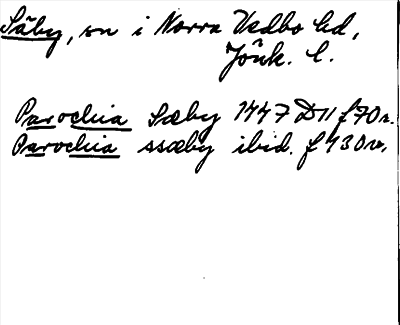 Säby, sn i Norra Vedbo hd,
Jönk. l.
Parochia Sæby 1447 D11 f70r.
Parochia ssæby ibid. f 130v.